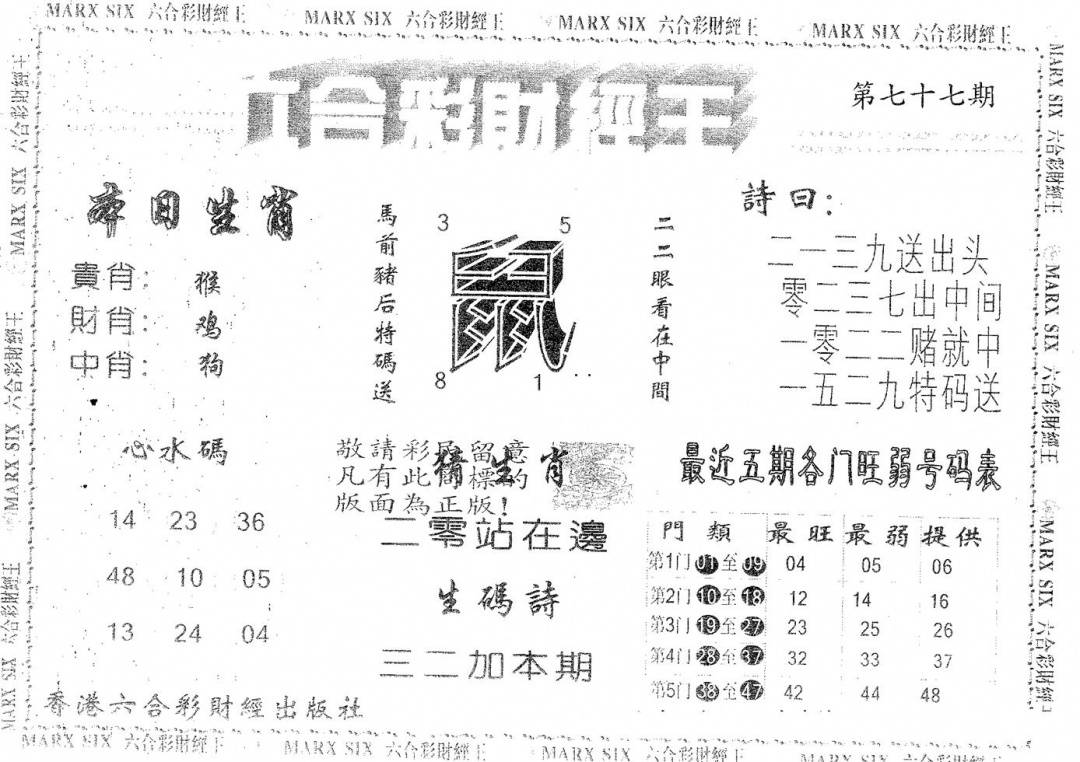 MARX SIX 六合彩財經王 MARX SIX 六合彩財經王 MARX SIX 六合彩財經王 MARX SIX 六合彩財經王
六合彩財經王
第七十七期
本日生肖
貴肖: 猴
財肖: 鸡
中肖: 狗
馬前豬后特碼送
3 5
鼠
8 1
二二眼看在中間
詩曰:
二一三九送出头
零二三七出中间
一零二二赌就中
一五二九特码送
心水碼
14 23 36
48 10 05
13 24 04
敬請彩民留意
凡有此商標的
版面為正版!
猜生肖
二零站在邊
生碼詩
三二加本期
最近五期各门旺弱号码表
門類 最旺 最弱 提供
第1门 01 至 09 04 05 06
第2门 10 至 18 12 14 16
第3门 19 至 27 23 25 26
第4门 28 至 37 32 33 37
第5门 38 至 47 42 44 48
香港六合彩財經出版社
MARX SIX 六合彩財經王 MARX SIX 六合彩財經王 MARX SIX 六合彩財經王
MARX SIX 六合彩財經王
MARX SIX 六合彩財經王
MARX SIX 六合彩財經王
MARX SIX 六合彩財經王
MARX SIX 六合彩財經王
MARX SIX 六合彩財經王